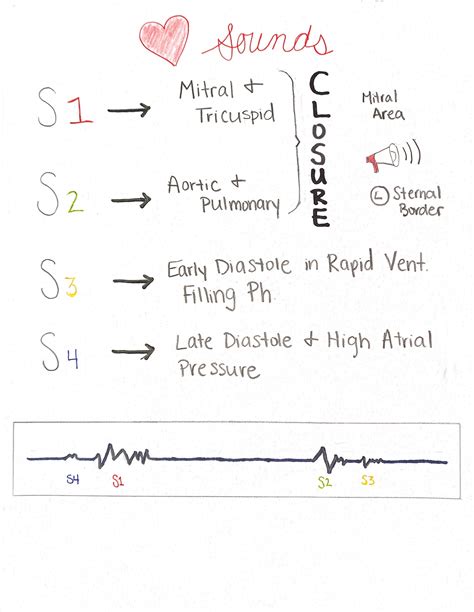 Sounds
S1 → Mitral &
Tricuspid
S2 → Aortic &
Pulmonary
CLOSURE
Mitral
Area
L Sternal
Border
S3 → Early Diastole in Rapid Vent.
Filling Ph.
S4 → Late Diastole & High Atrial
Pressure
S4 S1 S2 S3